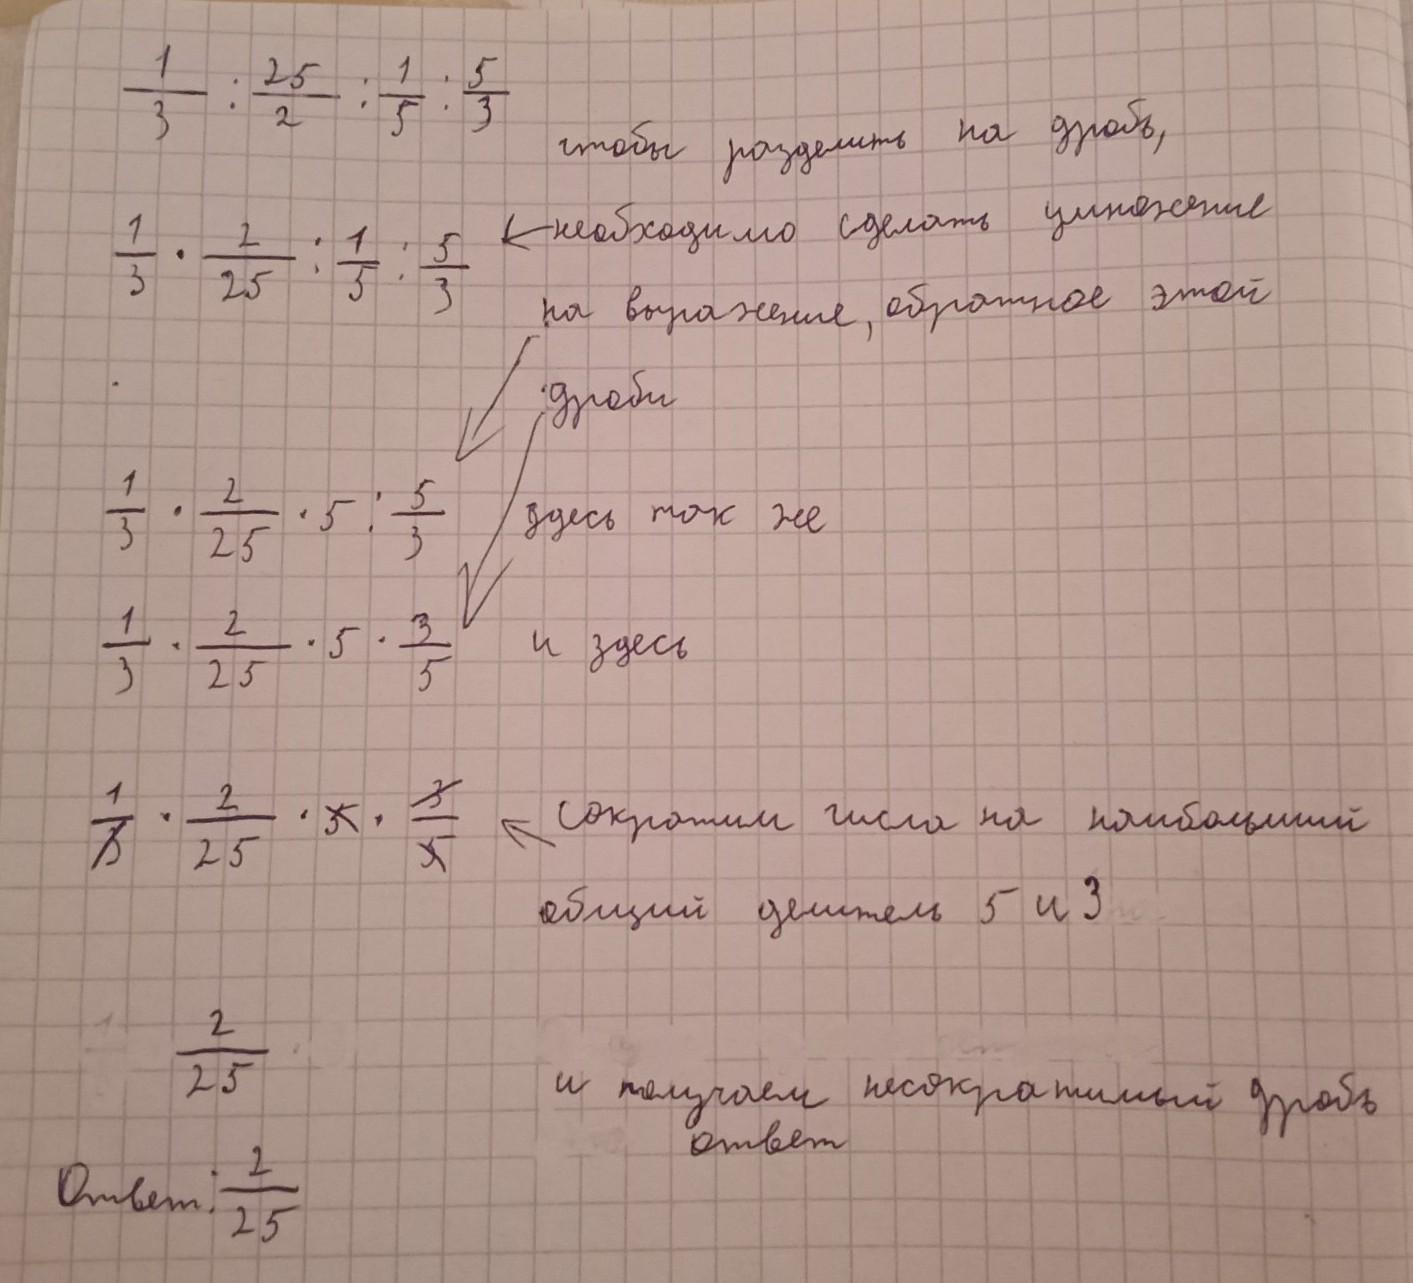 1/3 : 25/2 : 1/5 : 5/3
чтобы разделить на дробь,
1/3 · 2/25 : 1/5 : 5/3 ← необходимо сделать умножение
на выражение, обратное этой
дроби
1/3 · 2/25 · 5 : 5/3 здесь так же
1/3 · 2/25 · 5 · 3/5 и здесь
1/3 · 2/25 · 5 · 3/5 ← сократим числа на наибольший
общий делитель 5 и 3
2/25
и получаем несократимый дробь
ответ
Ответ: 2/25